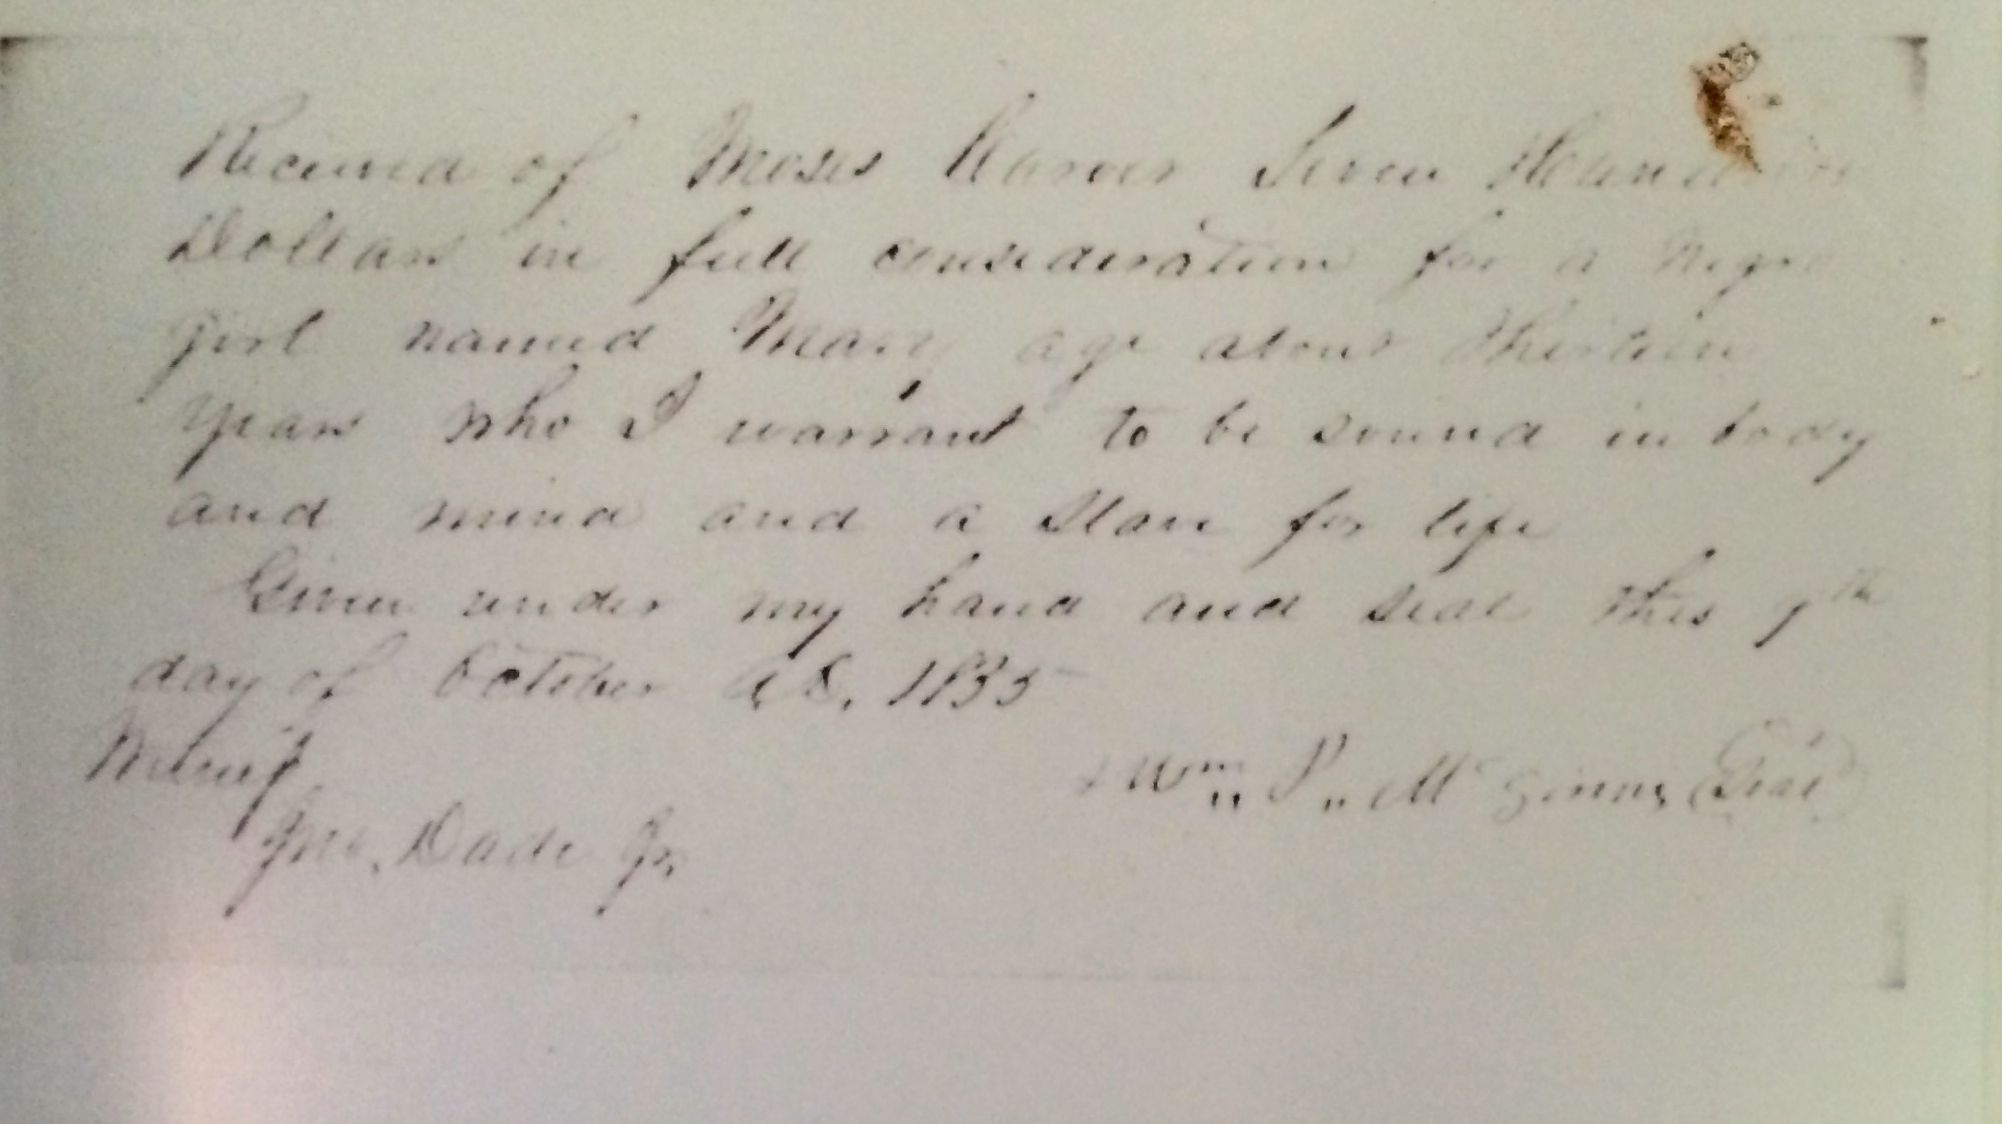 Received of Moses Carver Seven Hundred
Dollars in full consideration for a Negro
girl named Mary age about Thirteen
years who I warrant to be sound in body
and mind and a Slave for life
Given under my hand and seal this 9th
day of October A.D. 1835
Wm P McGinnis (Seal)
Jno. Dade Jr.